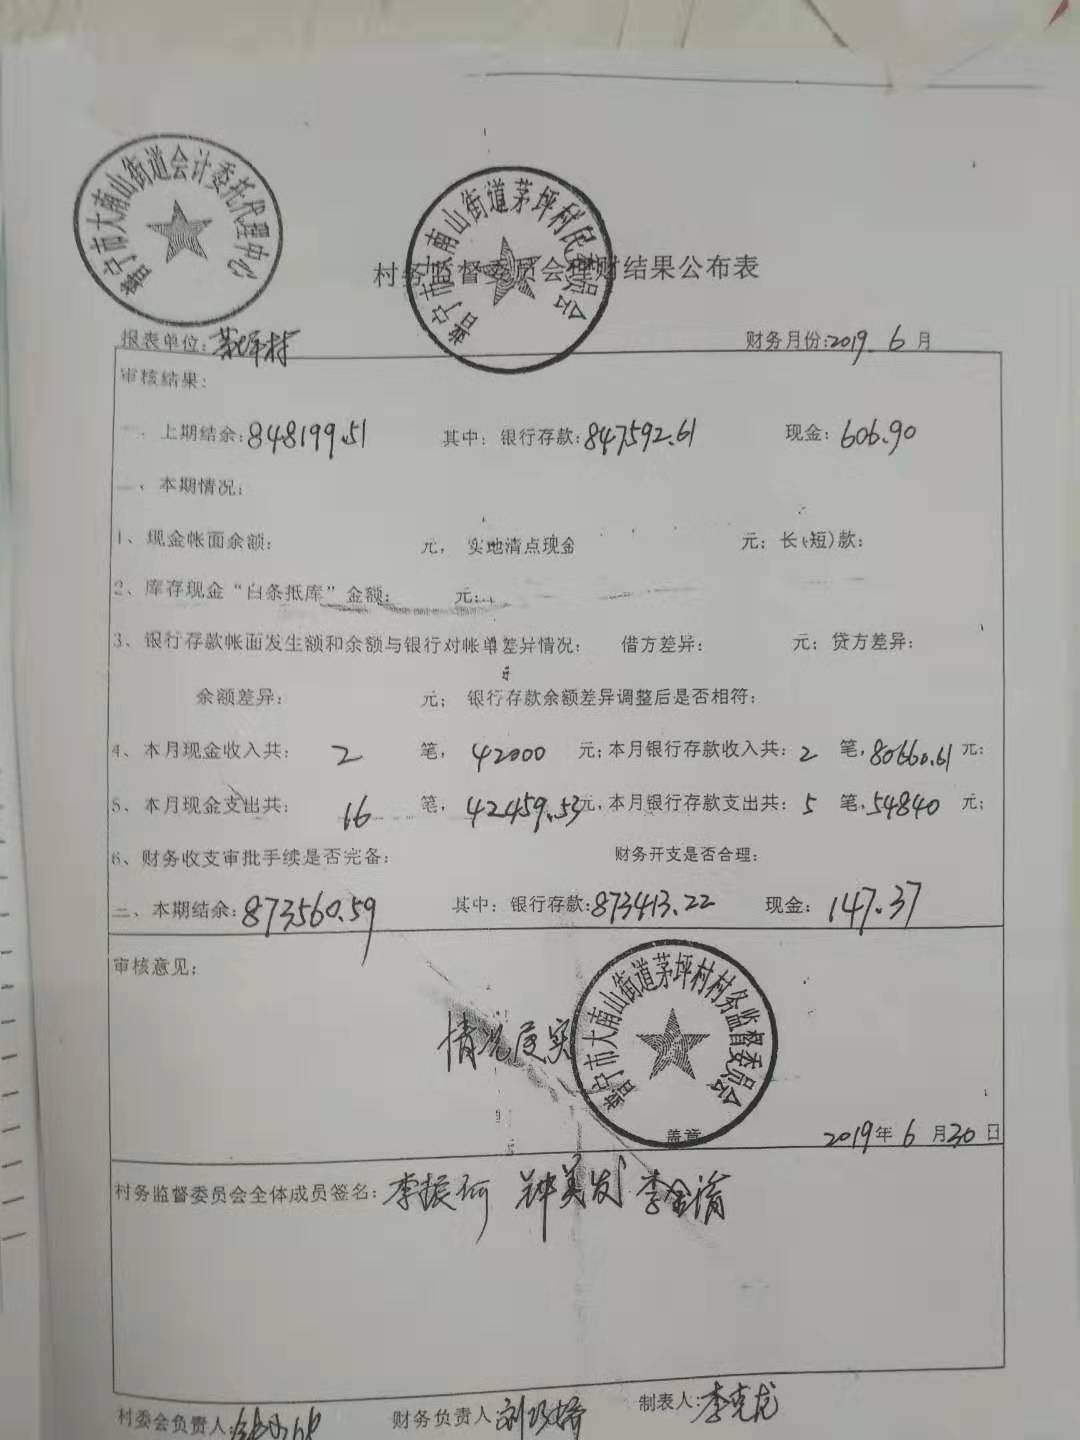 普宁市大南山街道会计委托代理中心
普宁市大南山街道茅坪村民委员会
村务监督委员会理财结果公布表
报表单位:茅坪村 财务月份:2019.6月
审核结果:
一、上期结余:848199.51 其中:银行存款:847592.61 现金:606.90
二、本期情况:
1、现金帐面余额: 元, 实地清点现金 元;长(短)款:
2、库存现金“白条抵库”金额: 元;
3、银行存款帐面发生额和余额与银行对帐单差异情况: 借方差异: 元;贷方差异:
余额差异: 元; 银行存款余额差异调整后是否相符:
4、本月现金收入共: 2 笔, 42000 元;本月银行存款收入共: 2 笔,80660.61元;
5、本月现金支出共: 16 笔, 42459.53元,本月银行存款支出共: 5 笔,54840 元;
6、财务收支审批手续是否完备: 财务开支是否合理:
三、本期结余:873560.59 其中:银行存款:873413.22 现金:147.37
审核意见:
情况属实
普宁市大南山街道茅坪村村务监督委员会
盖章 2019年6月30日
村务监督委员会全体成员签名:李振河 钟美发 李金
村委会负责人: 财务负责人 制表人:李克龙